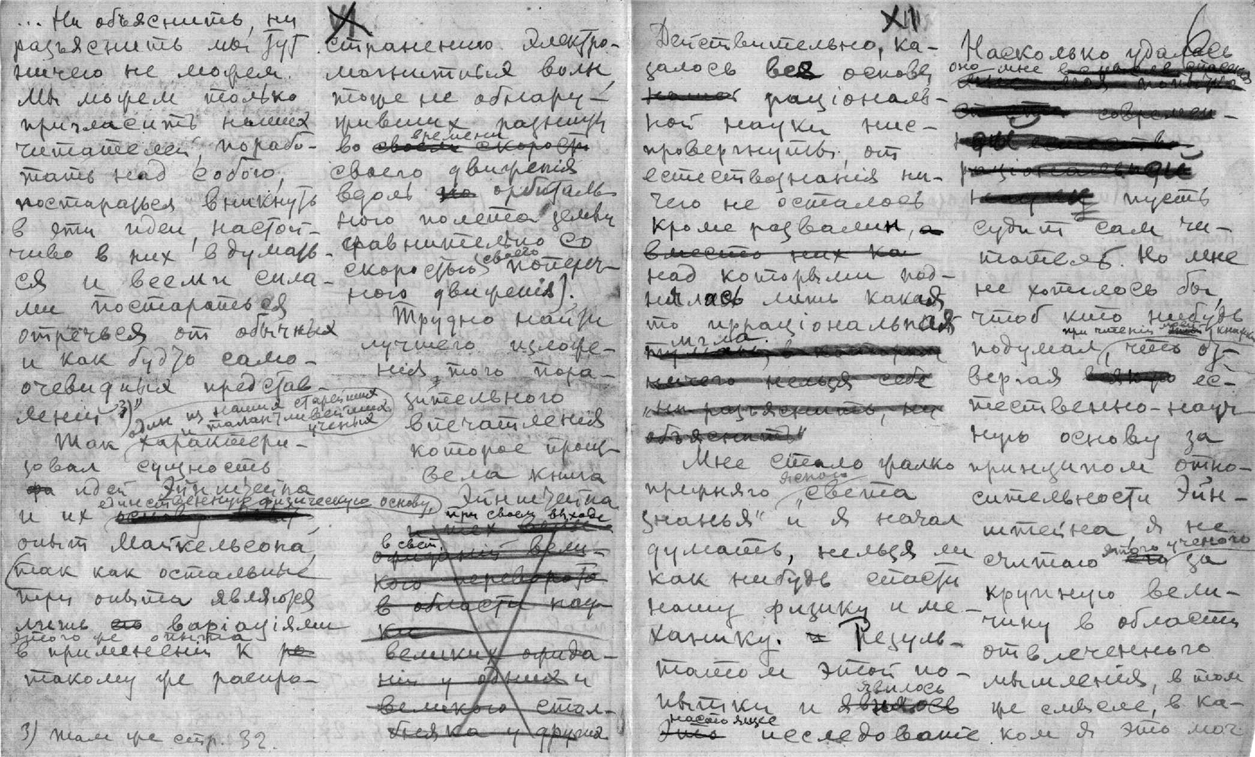 ... Ни объяснить, ни
разъяснить мы тут
ничего не можем.
Мы можем только
пригласить наших
читателей, порабо-
тать над собою,
постараться вникнуть
в эти идеи, настой-
чиво в них вдумать-
ся и всеми сила-
ми постараться
отречься от обычных
и как будто само-
очевидных представ-
лений" 3)
один из наших старейших
и талантливейших
ученых
Так характери-
зовал сущность
идей Эйнштейна
единственную физическую основу,
и их
опыт Майкельсона,
так как остальные
три опыта являются
лишь вариациями
этого же опыта
в применении к
такому же распро-
3) Там же стр. 32.
VI
странению электро-
магнитных волн
тоже не обнару-
живших разницу
времени
во своей скорости
своего движения
вдоль по орбиталь-
ного полета земли
сравнительно со
скоростью своего попереч-
ного движения].
Трудно найти
лучшего изложе-
ния того пора-
зительного
впечатления
которое произ-
вела книга
Эйнштейна
при своем выходе
в свет.
вели-
кого переворота
в области нау-
ки
великих
ний у одних и
великого стол-
бняка у других
XIII
Действительно, ка-
залось вся основа
нашей раціональ-
ной науки нис-
провергнута, от
естествознанія ни-
чего не осталось
кроме развалин, а
вместо них ка
над которыми под-
нялась лишь какая
то ирраціональная
мгла.
ничего нельзя себе
"ни разъяснить, ни
объяснить"
Мне стало жалко
прежняго "
света
знанья" и я начал
думать, нельзя ли
как нибудь спасти
нашу физику и ме-
ханику. Резуль-
татом этой по-
явилось
пытки и явилось
настоящее
это исследование
6
Насколько удалось
оно мне
современ-
науки пусть
судит сам чи-
татель. Но мне
не хотелось бы
чтоб кто нибудь
при чтении моей книги
подумал, что от-
вергая ес-
тественно-науч-
ную основу за
принципом отно-
сительности Эйн-
штейна я не
считаю этого ученого за
крупную вели-
чину в области
отвлеченного
мышления, в том
же смысле, в ка-
ком я это мог